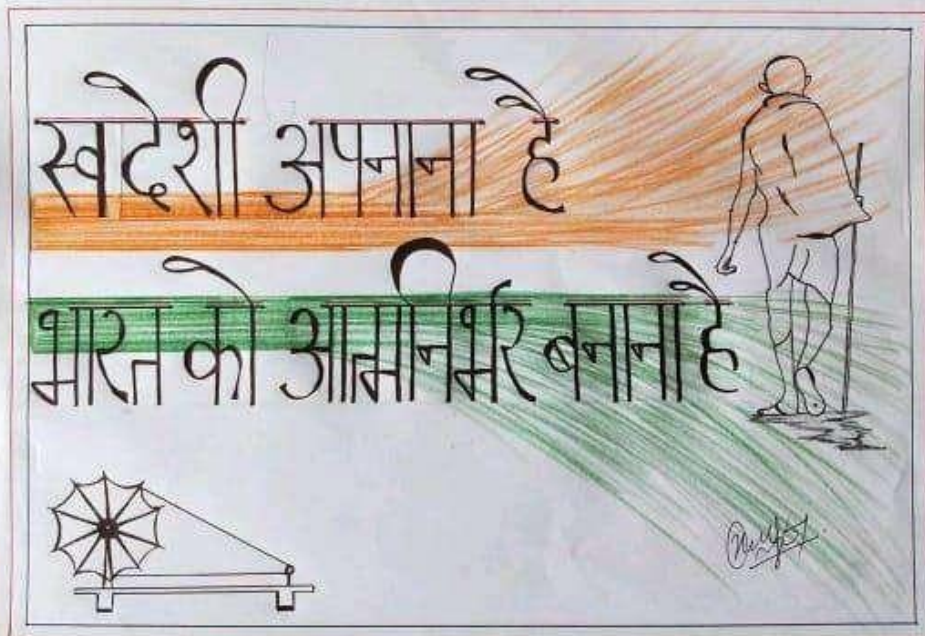 स्वदेशी अपनाना है
भारत को आत्मनिर्भर बनाना है